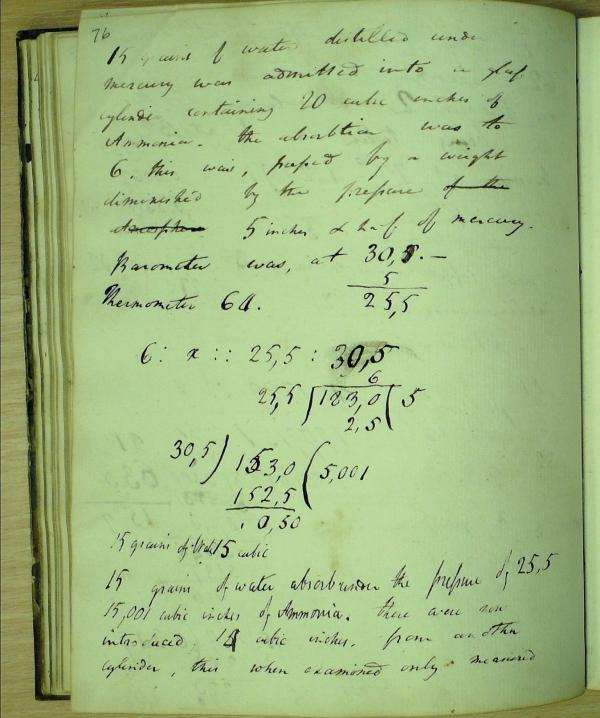 76
15 grains of water distilled under
mercury was admitted into a glass
cylinder containing 20 cubic inches of
Ammonia. the absorbtion was to
6. this was, pressed by a weight
diminished by the pressure of the
Atmosphere 5 inches & half of mercury.
Barometer was, at 30,5. —
5
Thermometer 64. 25,5
6 : x :: 25,5 : 30,5
6
25,5 ) 183,0 ( 5
2,5
30,5 ) 153,0 ( 5,001
152,5
0,50
15 grains of Water 15 cubic
15 grains of water absorb under the pressure of 25,5
15,001 cubic inches of Ammonia. there were now
introduced cubic inches. from another
cylinder, this when examined only measured